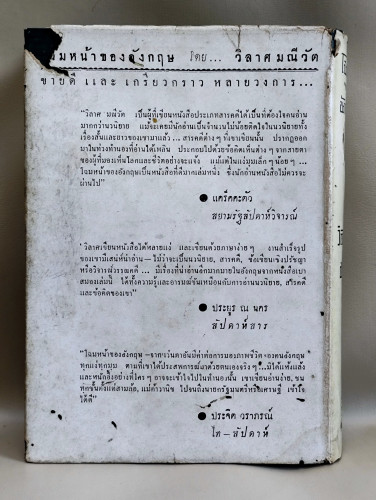 โฉมหน้าของอังกฤษ โดย... วิลาศ มณีวัต
ขายดี และ เกรียวกราว หลายวงการ...
"วิลาศ มณีวัต เป็นผู้ที่เขียนหนังสือประเภทสารคดีได้เป็นที่ต้องใจคนอ่าน
มากกว่านวนิยาย แม้จะเคยมีนักอ่านเป็นจำนวนไม่น้อยติดใจในนวนิยายทั้ง
เรื่องสั้นและยาวของเขามาแล้ว ... สารคดีต่าง ๆ ที่เขาเขียนนั้น ปรากฏออก
มาในท่วงทำนองที่อ่านได้เพลิน ประกอบไปด้วยข้อคิดเห็นต่าง ๆ จากสายตา
ของผู้ที่มองเห็นโลกและชีวิตอย่างจะแจ้ง แม้แต่ในแง่มุมเล็ก ๆ น้อย ๆ ...
โฉมหน้าของอังกฤษเป็นหนังสือที่ดีมากเล่มหนึ่ง ซึ่งนักอ่านหนังสือไม่ควรจะ
ผ่านไป"
● แคร็คคะตัว
สยามรัฐสัปดาห์วิจารณ์
"วิลาศเขียนหนังสือได้หลายแง่ และเขียนด้วยภาษาง่าย ๆ งานสำเร็จรูป
ของเขามีเสน่ห์ที่น่าอ่าน — ไม่ว่าจะเป็นนวนิยาย, สารคดี, ข้อเขียนเชิงปรัชญา
หรือวิจารณ์วรรณคดี ... มีเรื่องที่น่าอ่านอีกมากมายในอังกฤษจากหนังสือเบา
สมองเล่มนี้ ได้ทั้งความรู้และอารมณ์ขันเหมือนกับการอ่านนวนิยาย, สารคดี
และข้อคิดของเขา"
● ประยูร ณ นคร
สัปดาห์สาร
"โฉมหน้าของอังกฤษ -จากแว่นตาอันมีค่าต่อการมองภาพชีวิต ของคนอังกฤษ
ทุกแง่ทุกมุม ตามที่เขาได้ประสพการณ์มาด้วยตนเองจริง ๆ ...มิได้แห้งแล้ง
และหนักอึ้งอย่างที่ใคร ๆ อาจจะเข้าใจไปในทำนองนั้น เขาเขียนอ่านง่าย, ชน
ทุกชั้นตั้งแต่สามล้อ, แม่ค้าวานิช ไปจนถึงนายกรัฐมนตรีหรือเศรษฐี เข้าใจ
ได้ดี"
● ประจิต วราภรณ์
ไท — สัปดาห์